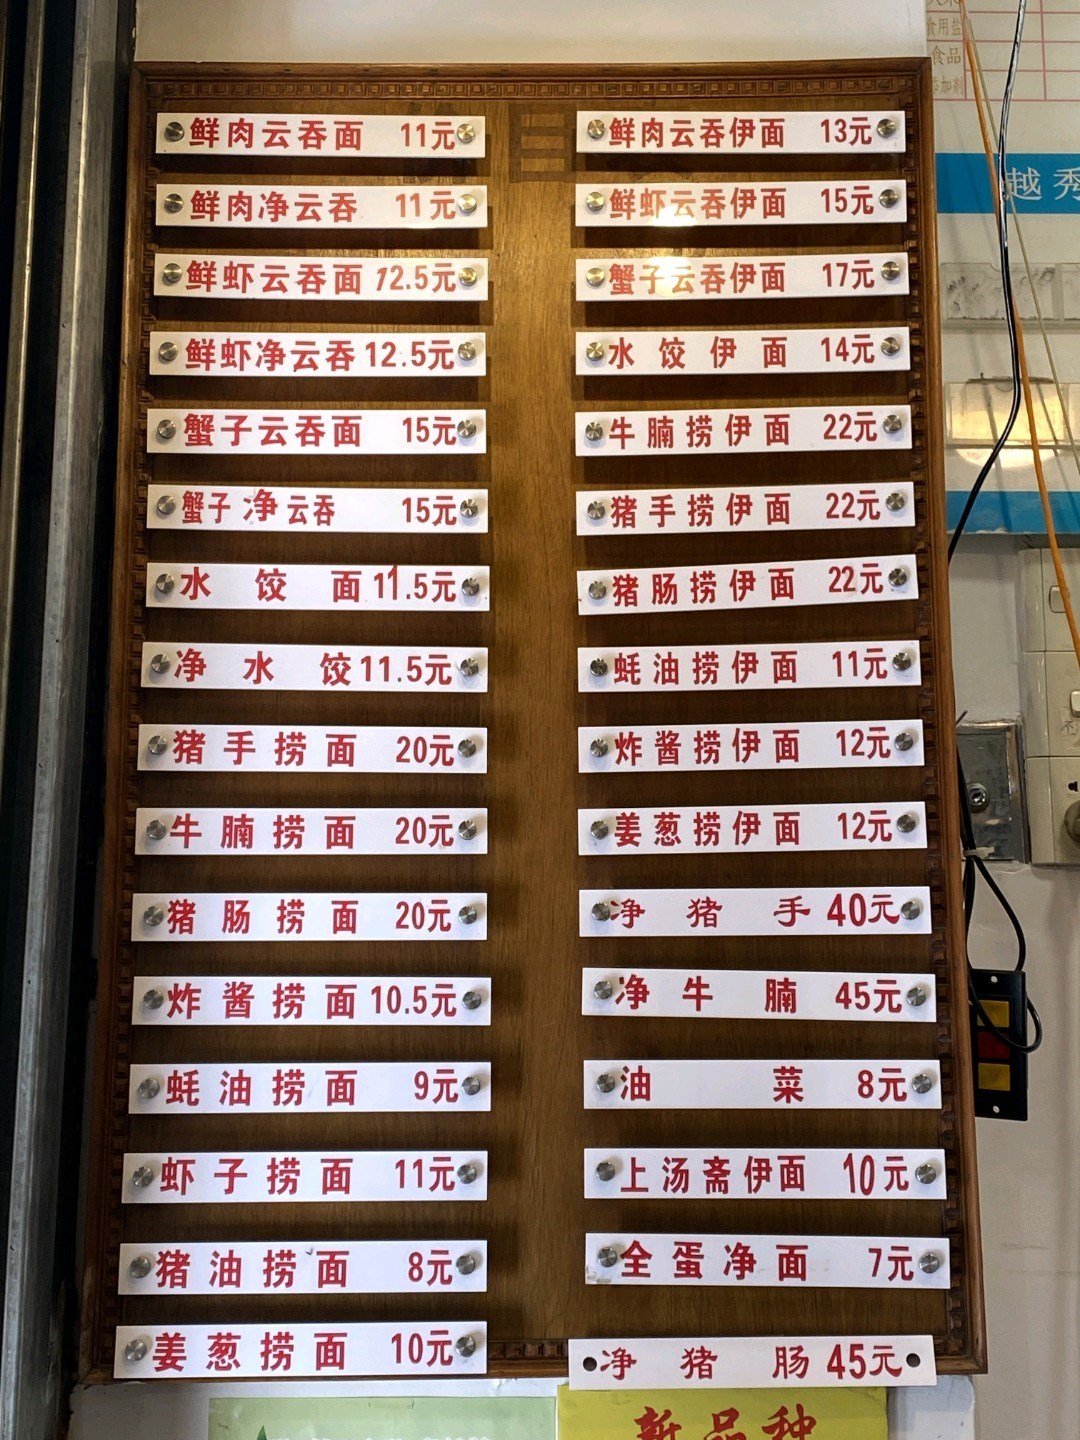 鲜肉云吞面 11元
鲜肉净云吞 11元
鲜虾云吞面 12.5元
鲜虾净云吞 12.5元
蟹子云吞面 15元
蟹子净云吞 15元
水饺面 11.5元
净水饺 11.5元
猪手捞面 20元
牛腩捞面 20元
猪肠捞面 20元
炸酱捞面 10.5元
蚝油捞面 9元
虾子捞面 11元
猪油捞面 8元
姜葱捞面 10元
鲜肉云吞伊面 13元
鲜虾云吞伊面 15元
蟹子云吞伊面 17元
水饺伊面 14元
牛腩捞伊面 22元
猪手捞伊面 22元
猪肠捞伊面 22元
蚝油捞伊面 11元
炸酱捞伊面 12元
姜葱捞伊面 12元
净猪手 40元
净牛腩 45元
油菜 8元
上汤斋伊面 10元
全蛋净面 7元
净猪肠 45元
新品种
食用盐
食品
添加剂
越秀